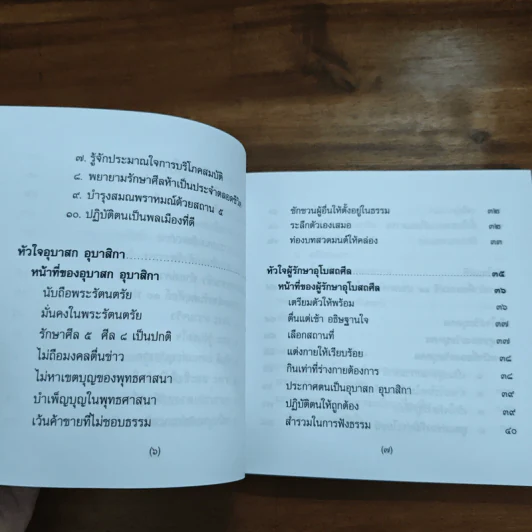 ๗. รู้จักประมาณใจการบริโภคสมบัติ
๘. พยายามรักษาศีลห้าเป็นประจำตลอดชีวิต
๙. บำรุงสมณพราหมณ์ด้วยสถาน ๕
๑๐. ปฏิบัติตนเป็นพลเมืองที่ดี
หัวใจอุบาสก อุบาสิกา
หน้าที่ของอุบาสก อุบาสิกา
นับถือพระรัตนตรัย
มั่นคงในพระรัตนตรัย
รักษาศีล ๕ ศีล ๘ เป็นปกติ
ไม่ถือมงคลตื่นข่าว
ไม่หาเขตบุญของพุทธศาสนา
บำเพ็ญบุญในพุทธศาสนา
เว้นค้าขายที่ไม่ชอบธรรม
(๖)
ชักชวนผู้อื่นให้ตั้งอยู่ในธรรม ๓๒
ระลึกตัวเองเสมอ ๓๒
ท่องบทสวดมนต์ให้คล่อง ๓๓
หัวใจผู้รักษาอุโบสถศีล ๓๕
หน้าที่ของผู้รักษาอุโบสถศีล ๓๖
เตรียมตัวให้พร้อม ๓๖
ตื่นแต่เช้า อธิษฐานใจ ๓๗
เลือกสถานที่ ๓๗
แต่งกายให้เรียบร้อย ๓๘
กินเท่าที่ร่างกายต้องการ ๓๘
ประกาศตนเป็นอุบาสก อุบาสิกา ๓๙
ปฏิบัติตนให้ถูกต้อง ๓๙
สำรวมในการฟังธรรม ๔๐
(๗)